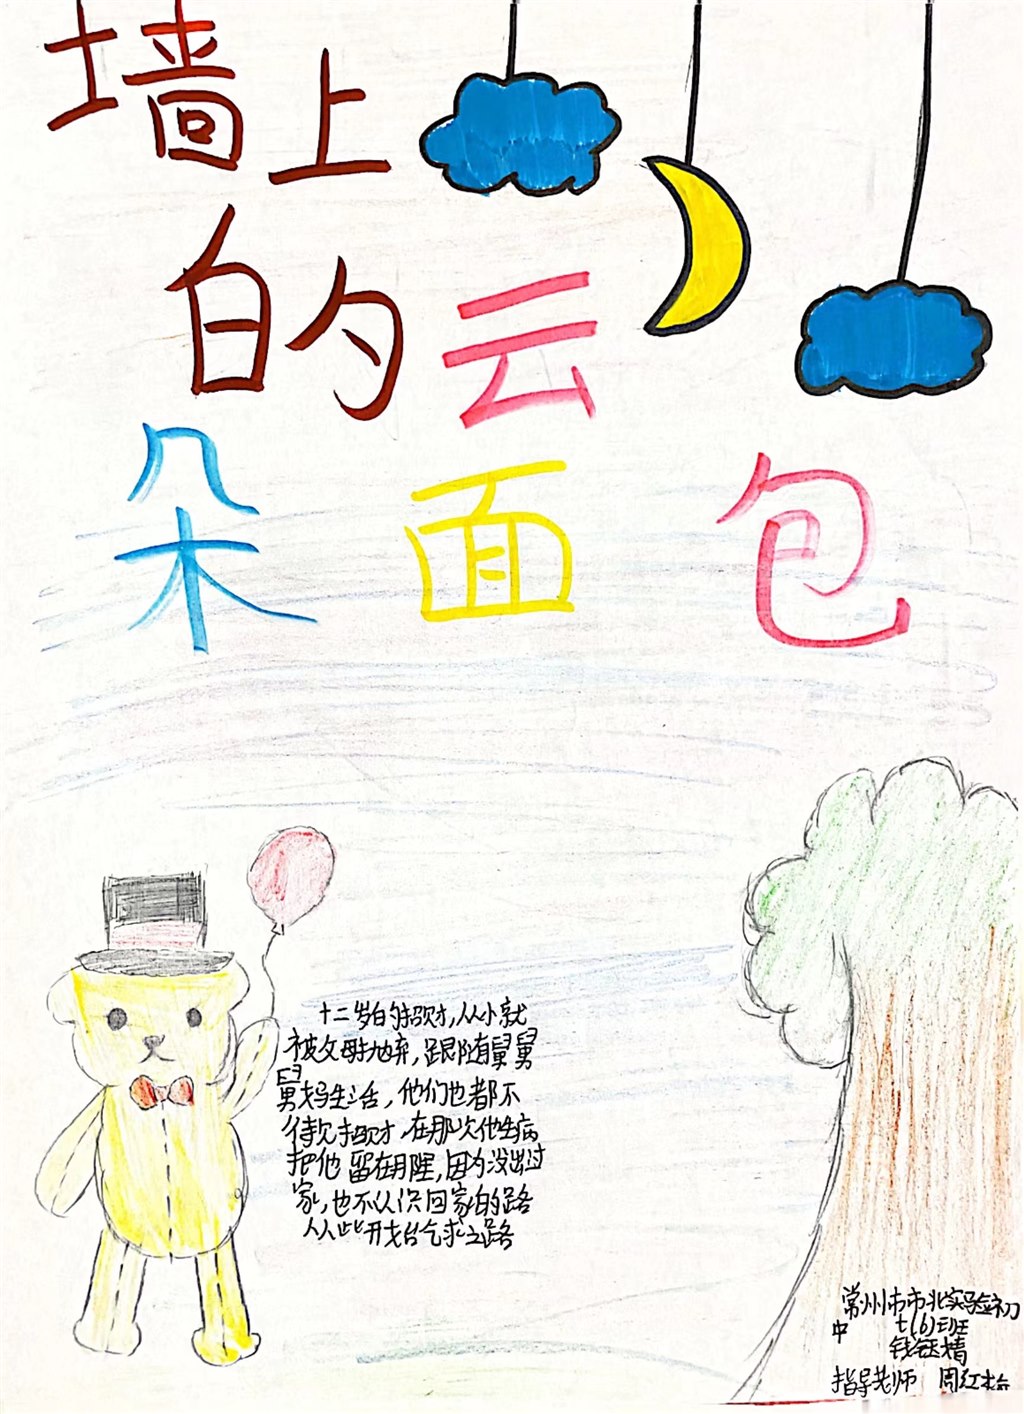 墙上
的云
朵面包
十二岁的招财,从小就
被父母抛弃,跟随舅舅
舅妈生活,他们也都不
待见招财,在那次他生病
把他留在医,因为没出过
家,也不认识回家的路
从此开始乞求之路
常州市市北实验初
中 七(6)班
钱
指导老师 周红